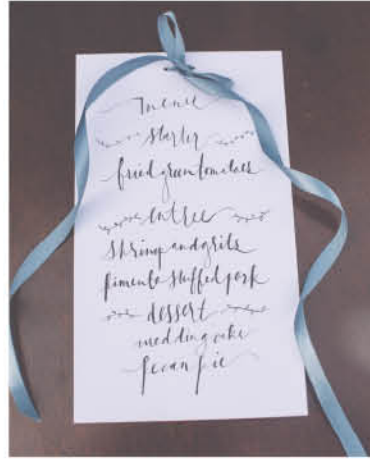 menu
starter
fried green tomatoes
entree
shrimp and grits
pimento stuffed pork
dessert
wedding cake
pecan pie